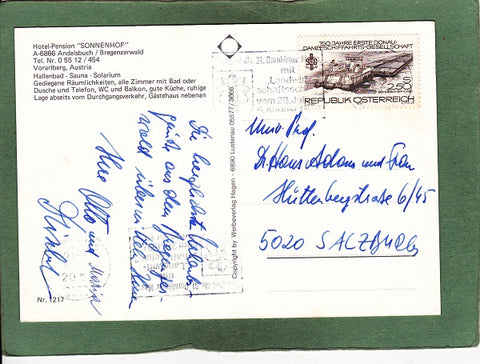 Hotel-Pension "SONNENHOF"
A-6866 Andelsbuch / Bregenzerwald
Tel. Nr. 0 55 12 / 454
Vorarlberg, Austria
Hallenbad - Sauna - Solarium
Gediegene Räumlichkeiten, alle Zimmer mit Bad oder
Dusche und Telefon, WC und Balkon, gute Küche, ruhige
Lage abseits vom Durchgangsverkehr, Gästehaus nebenan
Die herzlichsten Urlaubs-
grüße aus dem Bregenzer-
wald
Ihre Otto und Maria
Nr. 1217
Copyright by Werbeverlag Hagen - 6890 Lustenau 05577/3666
mit
Landwirt
schaftsschau
vom 28.
150 JAHRE ERSTE DONAU-
DAMPFSCHIFFAHRTS-GESELLSCHAFT
2.50
REPUBLIK ÖSTERREICH
Univ. Prof.
Dr. Hans Adam und Frau
Hüttenbergstraße 6/45
5020 SALZBURG